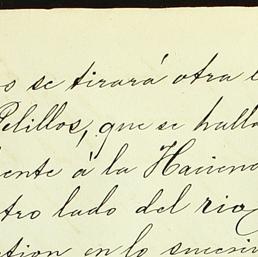 o se tirará otra l
Pelillos, que se halla
ente á la Haciend
tro lado del rio,
ction en lo sucesi